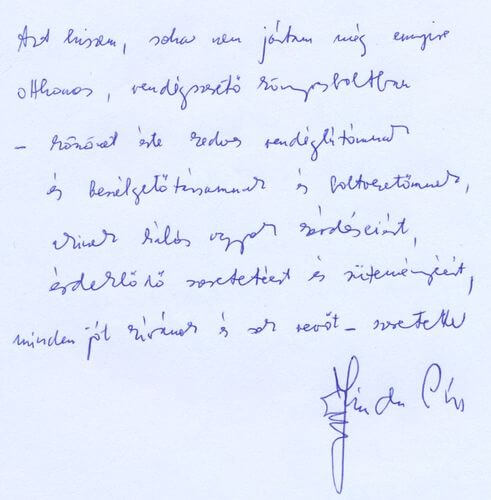 Azt hiszem, soha nem jártam még ennyire
otthonos, vendégszerető könyvesboltban
– köszönet érte kedves vendéglátómnak
és beszélgetőtársamnak és boltvezetőmnek,
akinek hálás vagyok kérdéseiért,
érdeklődő szeretetéért és süteményéért,
minden jót kívánok és sok vevőt – szeretettel